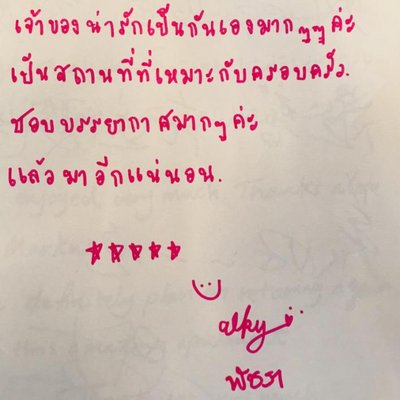 เจ้าของน่ารักเป็นกันเองมากๆๆค่ะ
เป็นสถานที่ที่เหมาะกับครอบครัว.
ชอบบรรยากาศมากๆค่ะ
แล้วมาอีกแน่นอน.
☆☆☆☆☆
alky
พัชรา